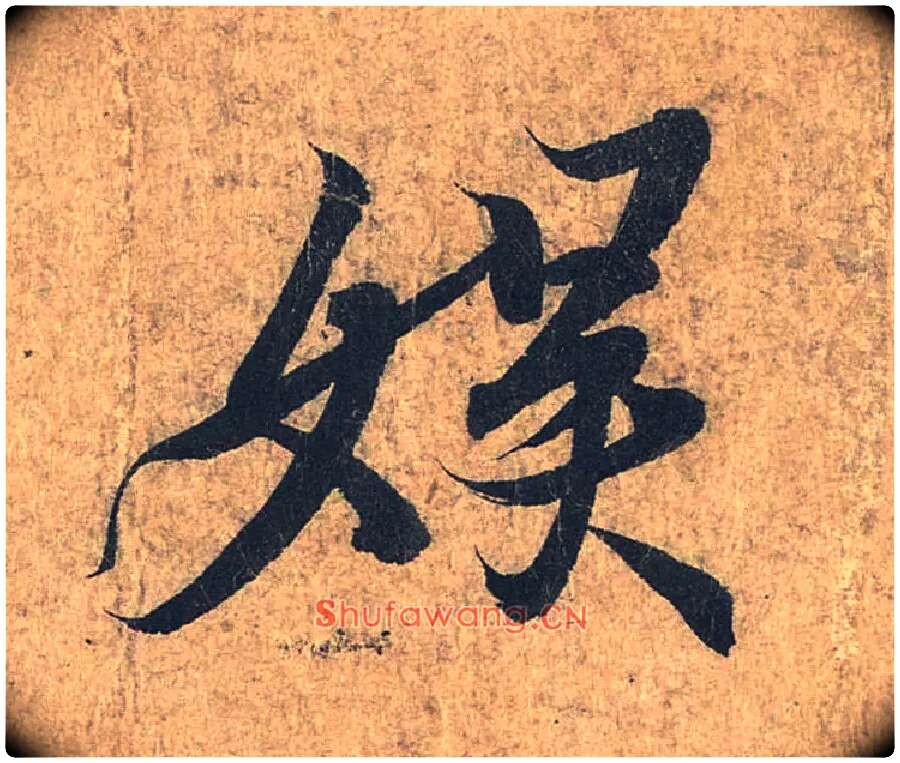 娱
Shufawang.CN